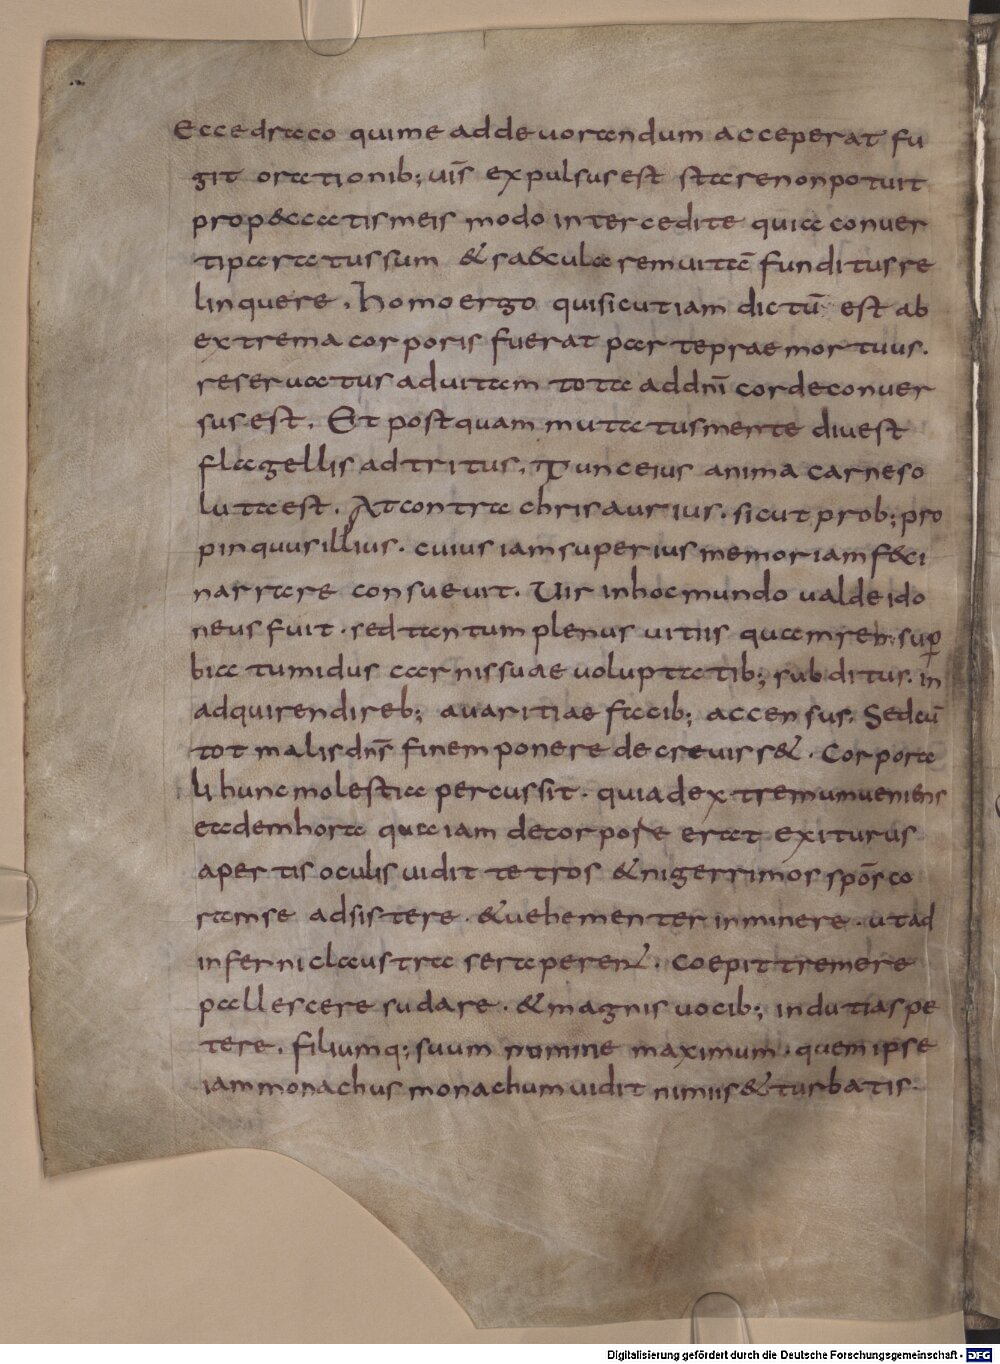 Ecce draco qui me ad deuorandum acceperat fu
git orationib; uīs expulsus est stare non potuit
pro p&ccatis meis modo intercedite quia conuer
ti paratus sum & sa&cularem uitā funditus re
linquere. homo ergo qui sicut iam dictū est ab
extrema corporis fuerat parte praemortuus.
reseruatus ad uitam tota ad dn̄i corde conuer
sus est. Et postquam mutatus mente diu est
flagellis adtritus. Tunc eius anima carne so
luta est. At contra chrisaurius. sicut prob; pro
pinquus illius. cuius iam superius memoriam f&ci
narrare consueuit. Uir in hoc mundo ualde ido
neus fuit. sed tantum plenus uitiis quam reb; sup
bia tumidus carnis suae uoluptatib; subditus. in
adquirendi reb; auaritiae facib; accensus. Sed cū
tot malis dn̄s finem ponere decreuiss&. Corpora
li hunc molestia percussit. quia d extremum ueniens
eadem hora qua iam de corpore erat exiturus
apertis oculis uidit tetros & nigerrimos spōs co
ram se adsistere. & uehementer inminere. ut ad
inferni claustra se raperen&. Coepit tremere
pallescere sudare. & magnis uocib; indutias pe
tere. filiumq; suum nomine maximum. quem ipse
iam monachus monachum uidit nimiis & turbatis.
Digitalisierung gefördert durch die Deutsche Forschungsgemeinschaft - DFG